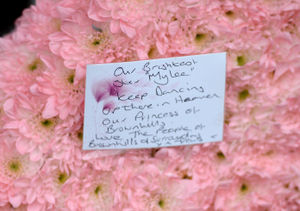 Our Brightest
Star "Mylee"
Keep Dancing
Up There in Heaven
Our Princess of
Brownhills
Love The People of
Brownhills & Surrounding